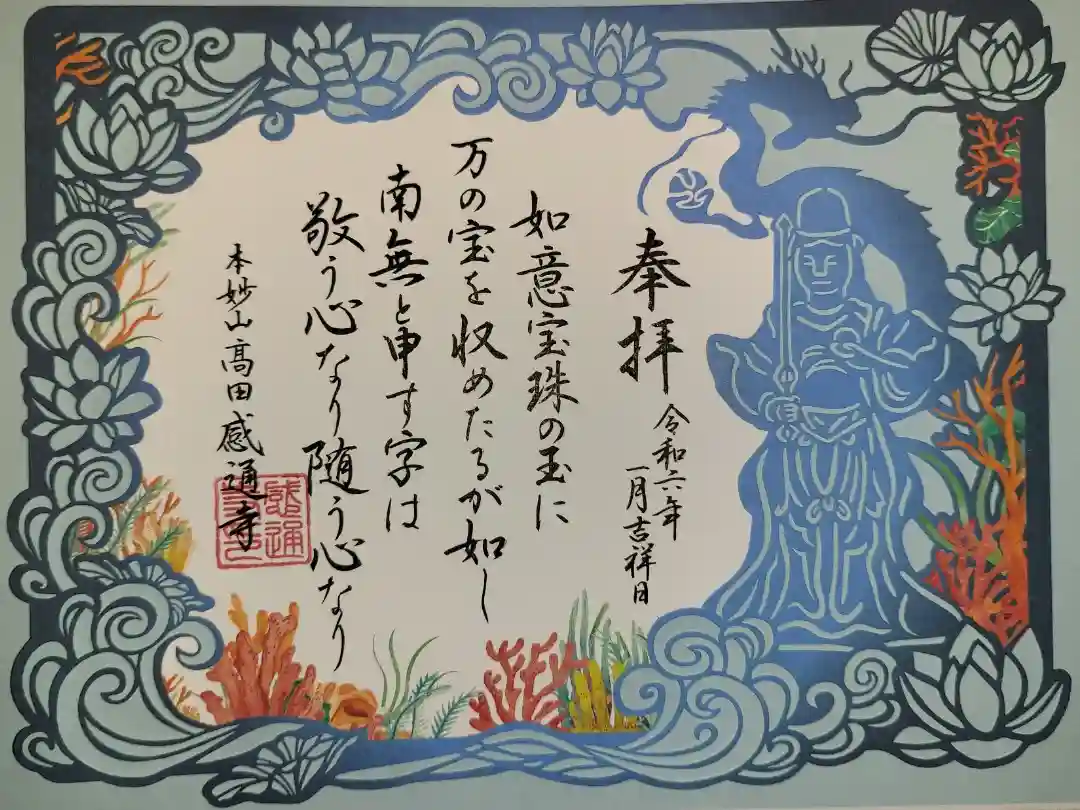 奉拝
令和六年
一月吉祥日
如意宝珠の玉に
万の宝を収めたるが如し
南無と申す字は
敬う心なり随う心なり
本妙山高田感通寺
感通